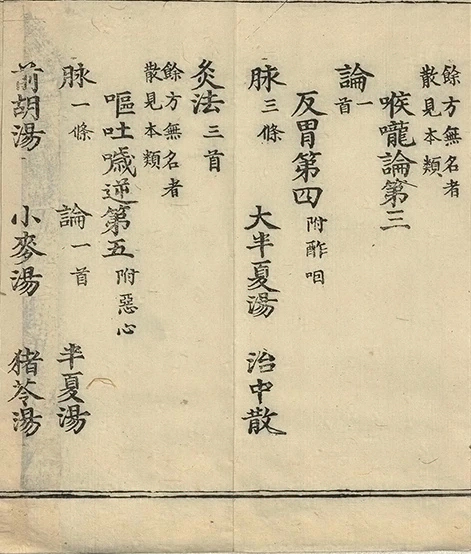 餘方無名者
散見本類
喉嚨論第三
論一首
反胃第四 附酢咽
脉三條 大半夏湯 治中散
灸法三首
餘方無名者
散見本類
嘔吐噦逆第五 附惡心
脉一條 論一首 半夏湯
前胡湯 小麥湯 猪苓湯